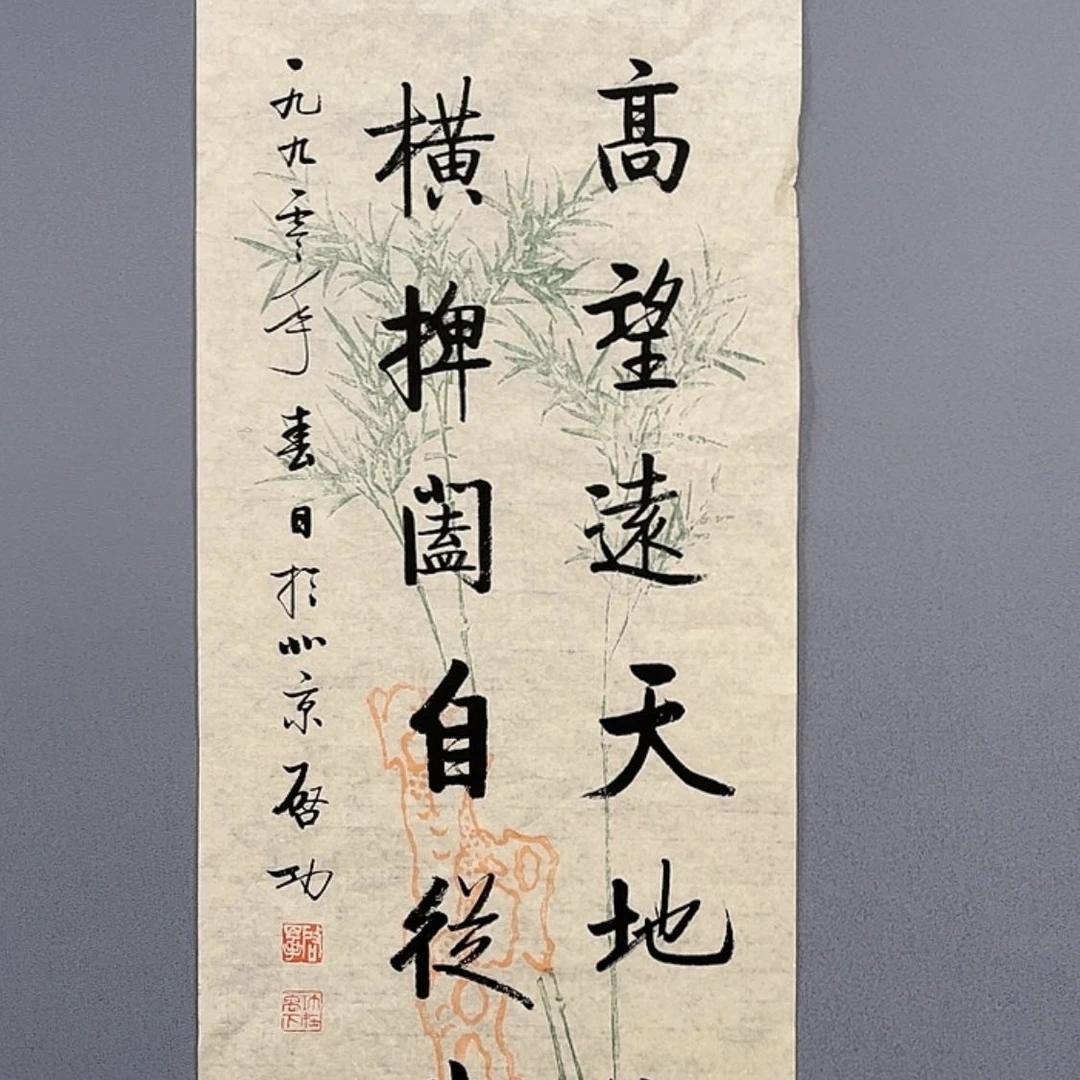 高望遠天地
橫捭闔自從
一九九零年春日於北京啓功